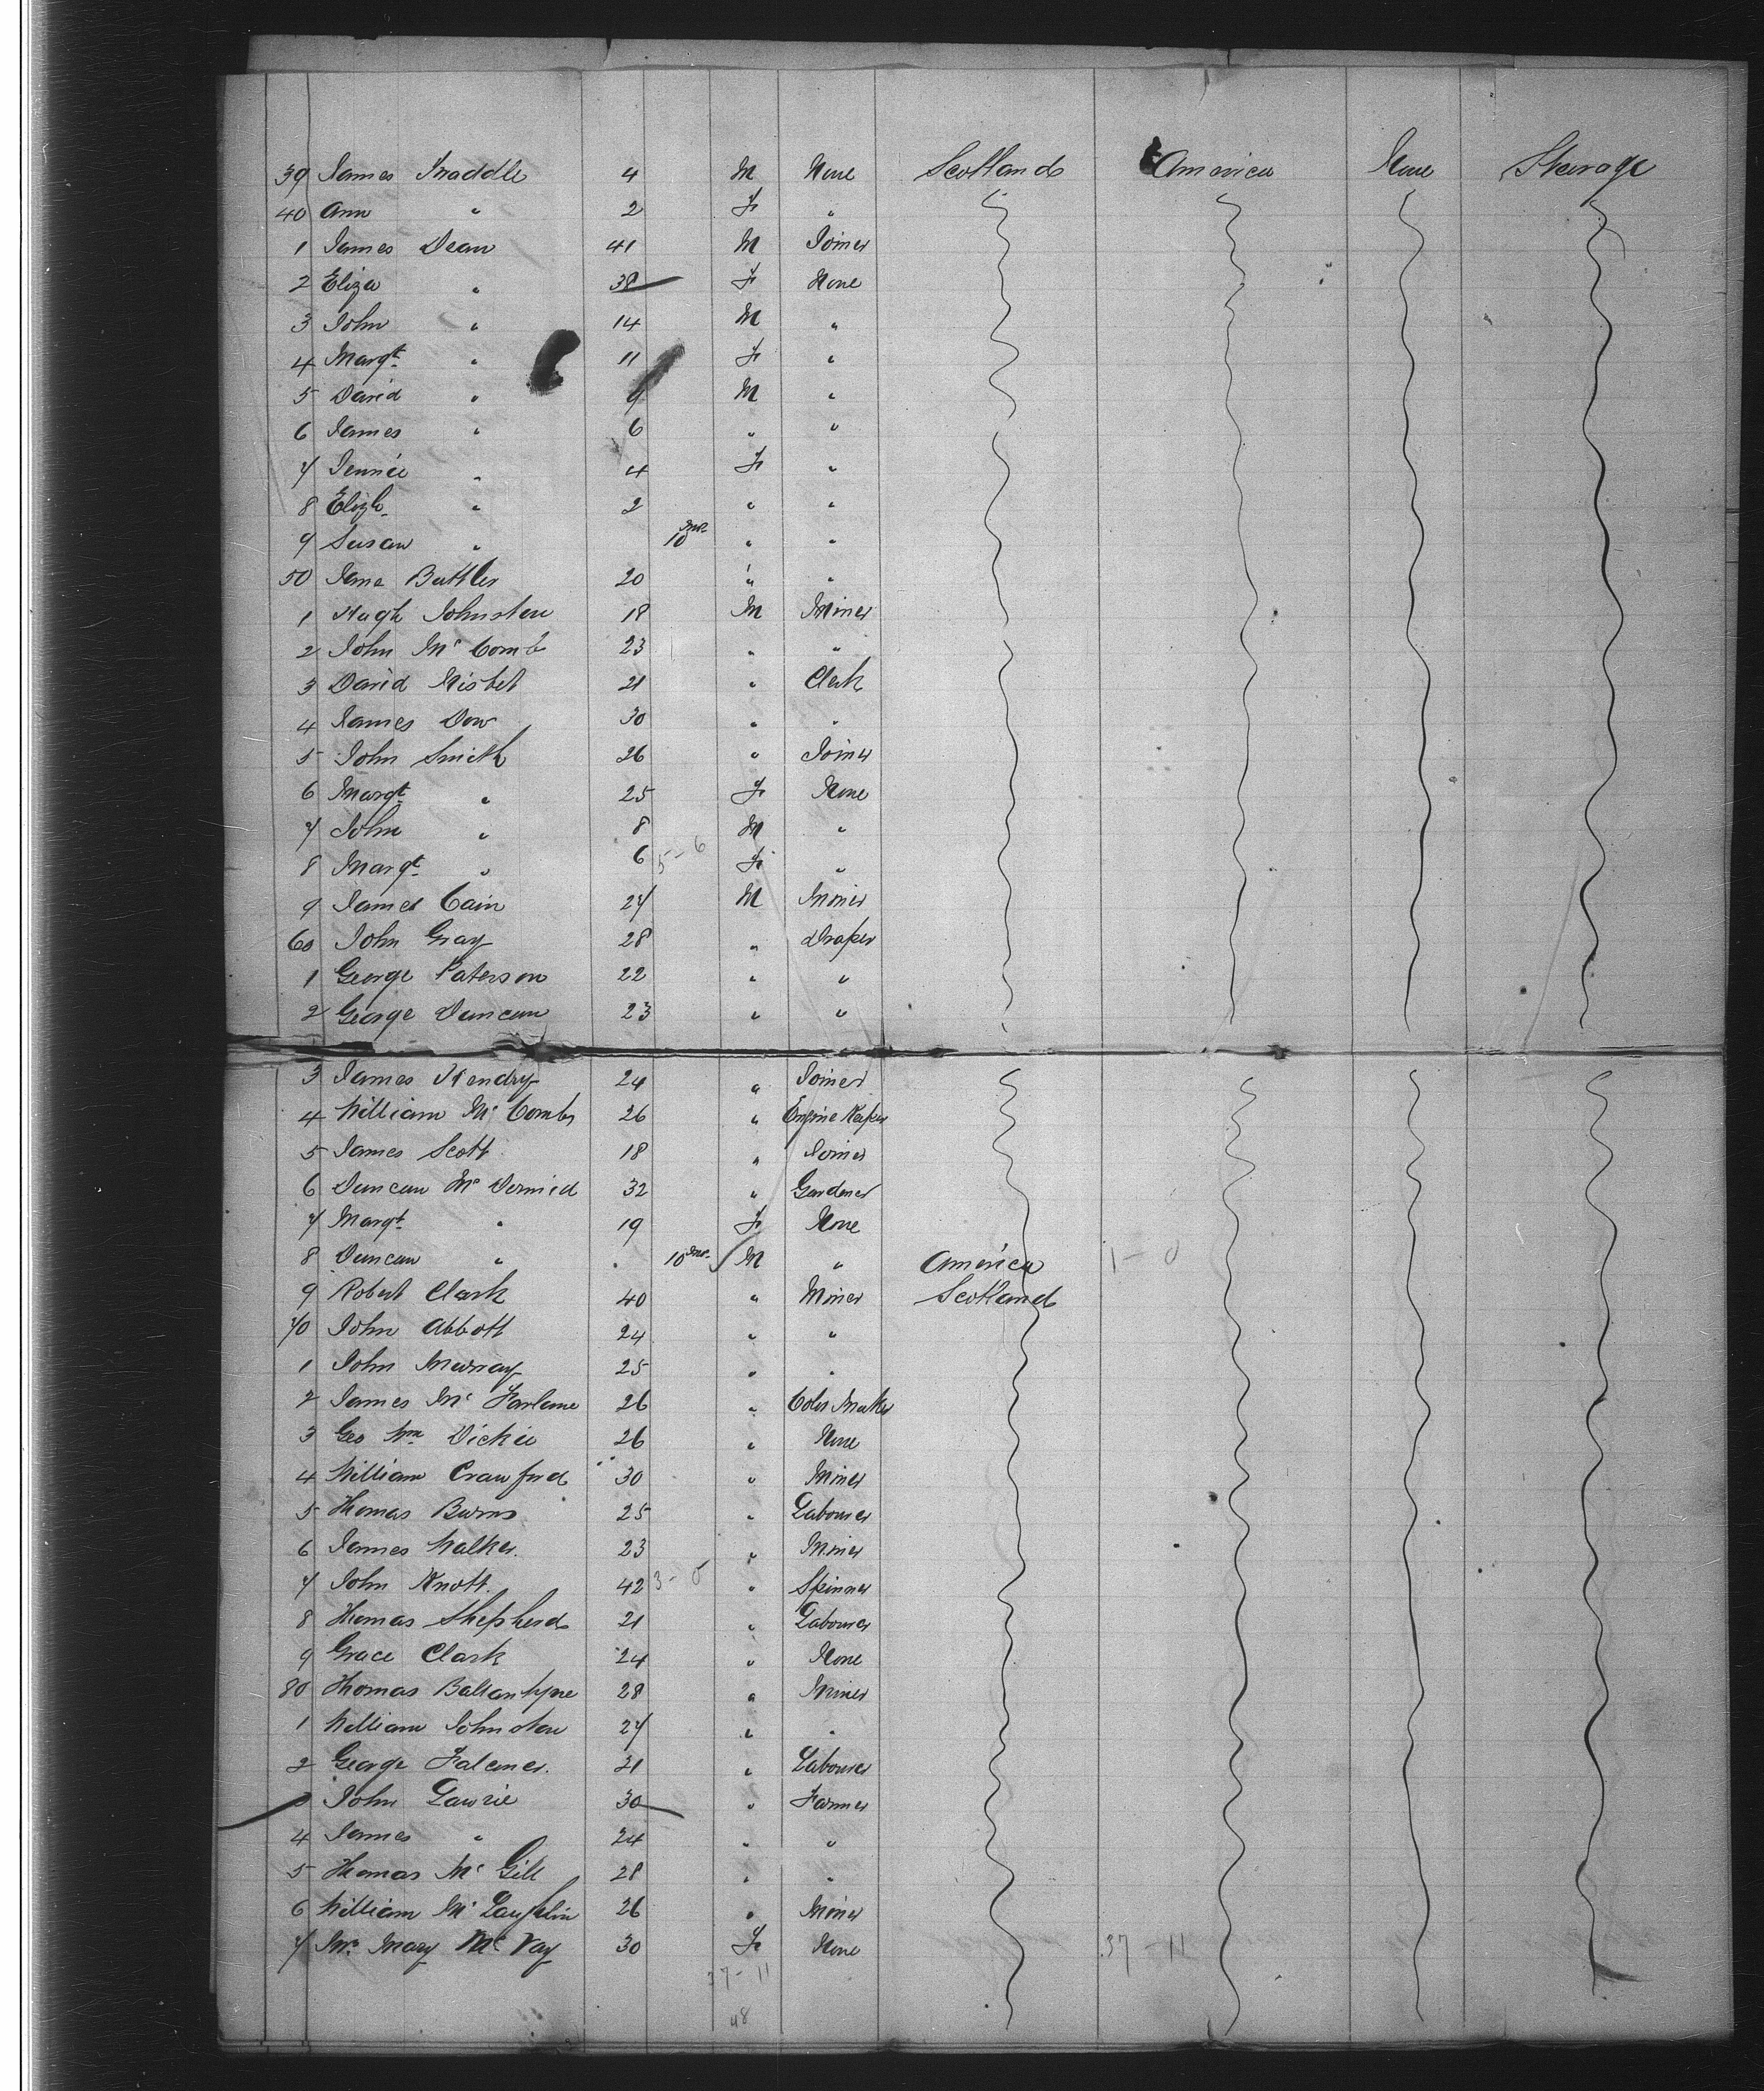 39 James Traddle 4 M None Scotland America None Steerage
40 Ann " 2 F "
1 James Dean 41 M Joiner
2 Eliza " 38 F None
3 John " 14 M "
4 Margt " 11 F "
5 David " 9 M "
6 James " 6 " "
7 Jennie " 4 F "
8 Elizh " 2 " "
9 Susan " 10 mos " "
50 Jane Buttler 20 " "
1 Hugh Johnston 18 M Miner
2 John McComb 23 " "
3 David Nisbet 21 " Clerk
4 James Dow 30 " "
5 John Smith 26 " Joiner
6 Margt " 25 F None
7 John " 8 M "
8 Margt " 6 5-6 F "
9 James Cain 27 M Miner
60 John Gray 28 " Draper
1 George Paterson 22 " "
2 George Duncan 23 " "
3 James Hendry 24 " Joiner
4 William McCombs 26 " Engine Keeper
5 James Scott 18 " Joiner
6 Duncan McDermid 32 " Gardener
7 Margt " 19 F None
8 Duncan " 10 mos M " America 1-0
9 Robert Clark 40 " Miner Scotland
70 John Abbott 24 " "
1 John Murray 25 " "
2 James McFarlane 26 " Maker
3 Geo Wm Dickie 26 " None
4 William Crawford 30 " Miner
5 Thomas Burns 25 " Labourer
6 James Walker 23 " Miner
7 John Knott 42 3-0 " Spinner
8 Thomas Shepherd 21 " Labourer
9 Grace Clark 24 " None
80 Thomas Ballantyne 28 " Miner
1 William Johnston 27 " "
2 George Falconer 31 " Labourer
3 John Lawrie 30 " Farmer
4 James " 24 " "
5 Thomas McGill 28 " "
6 William McLaughlin 26 " Miner
7 Mrs Mary McVay 30 F None 37-11
37-11
48